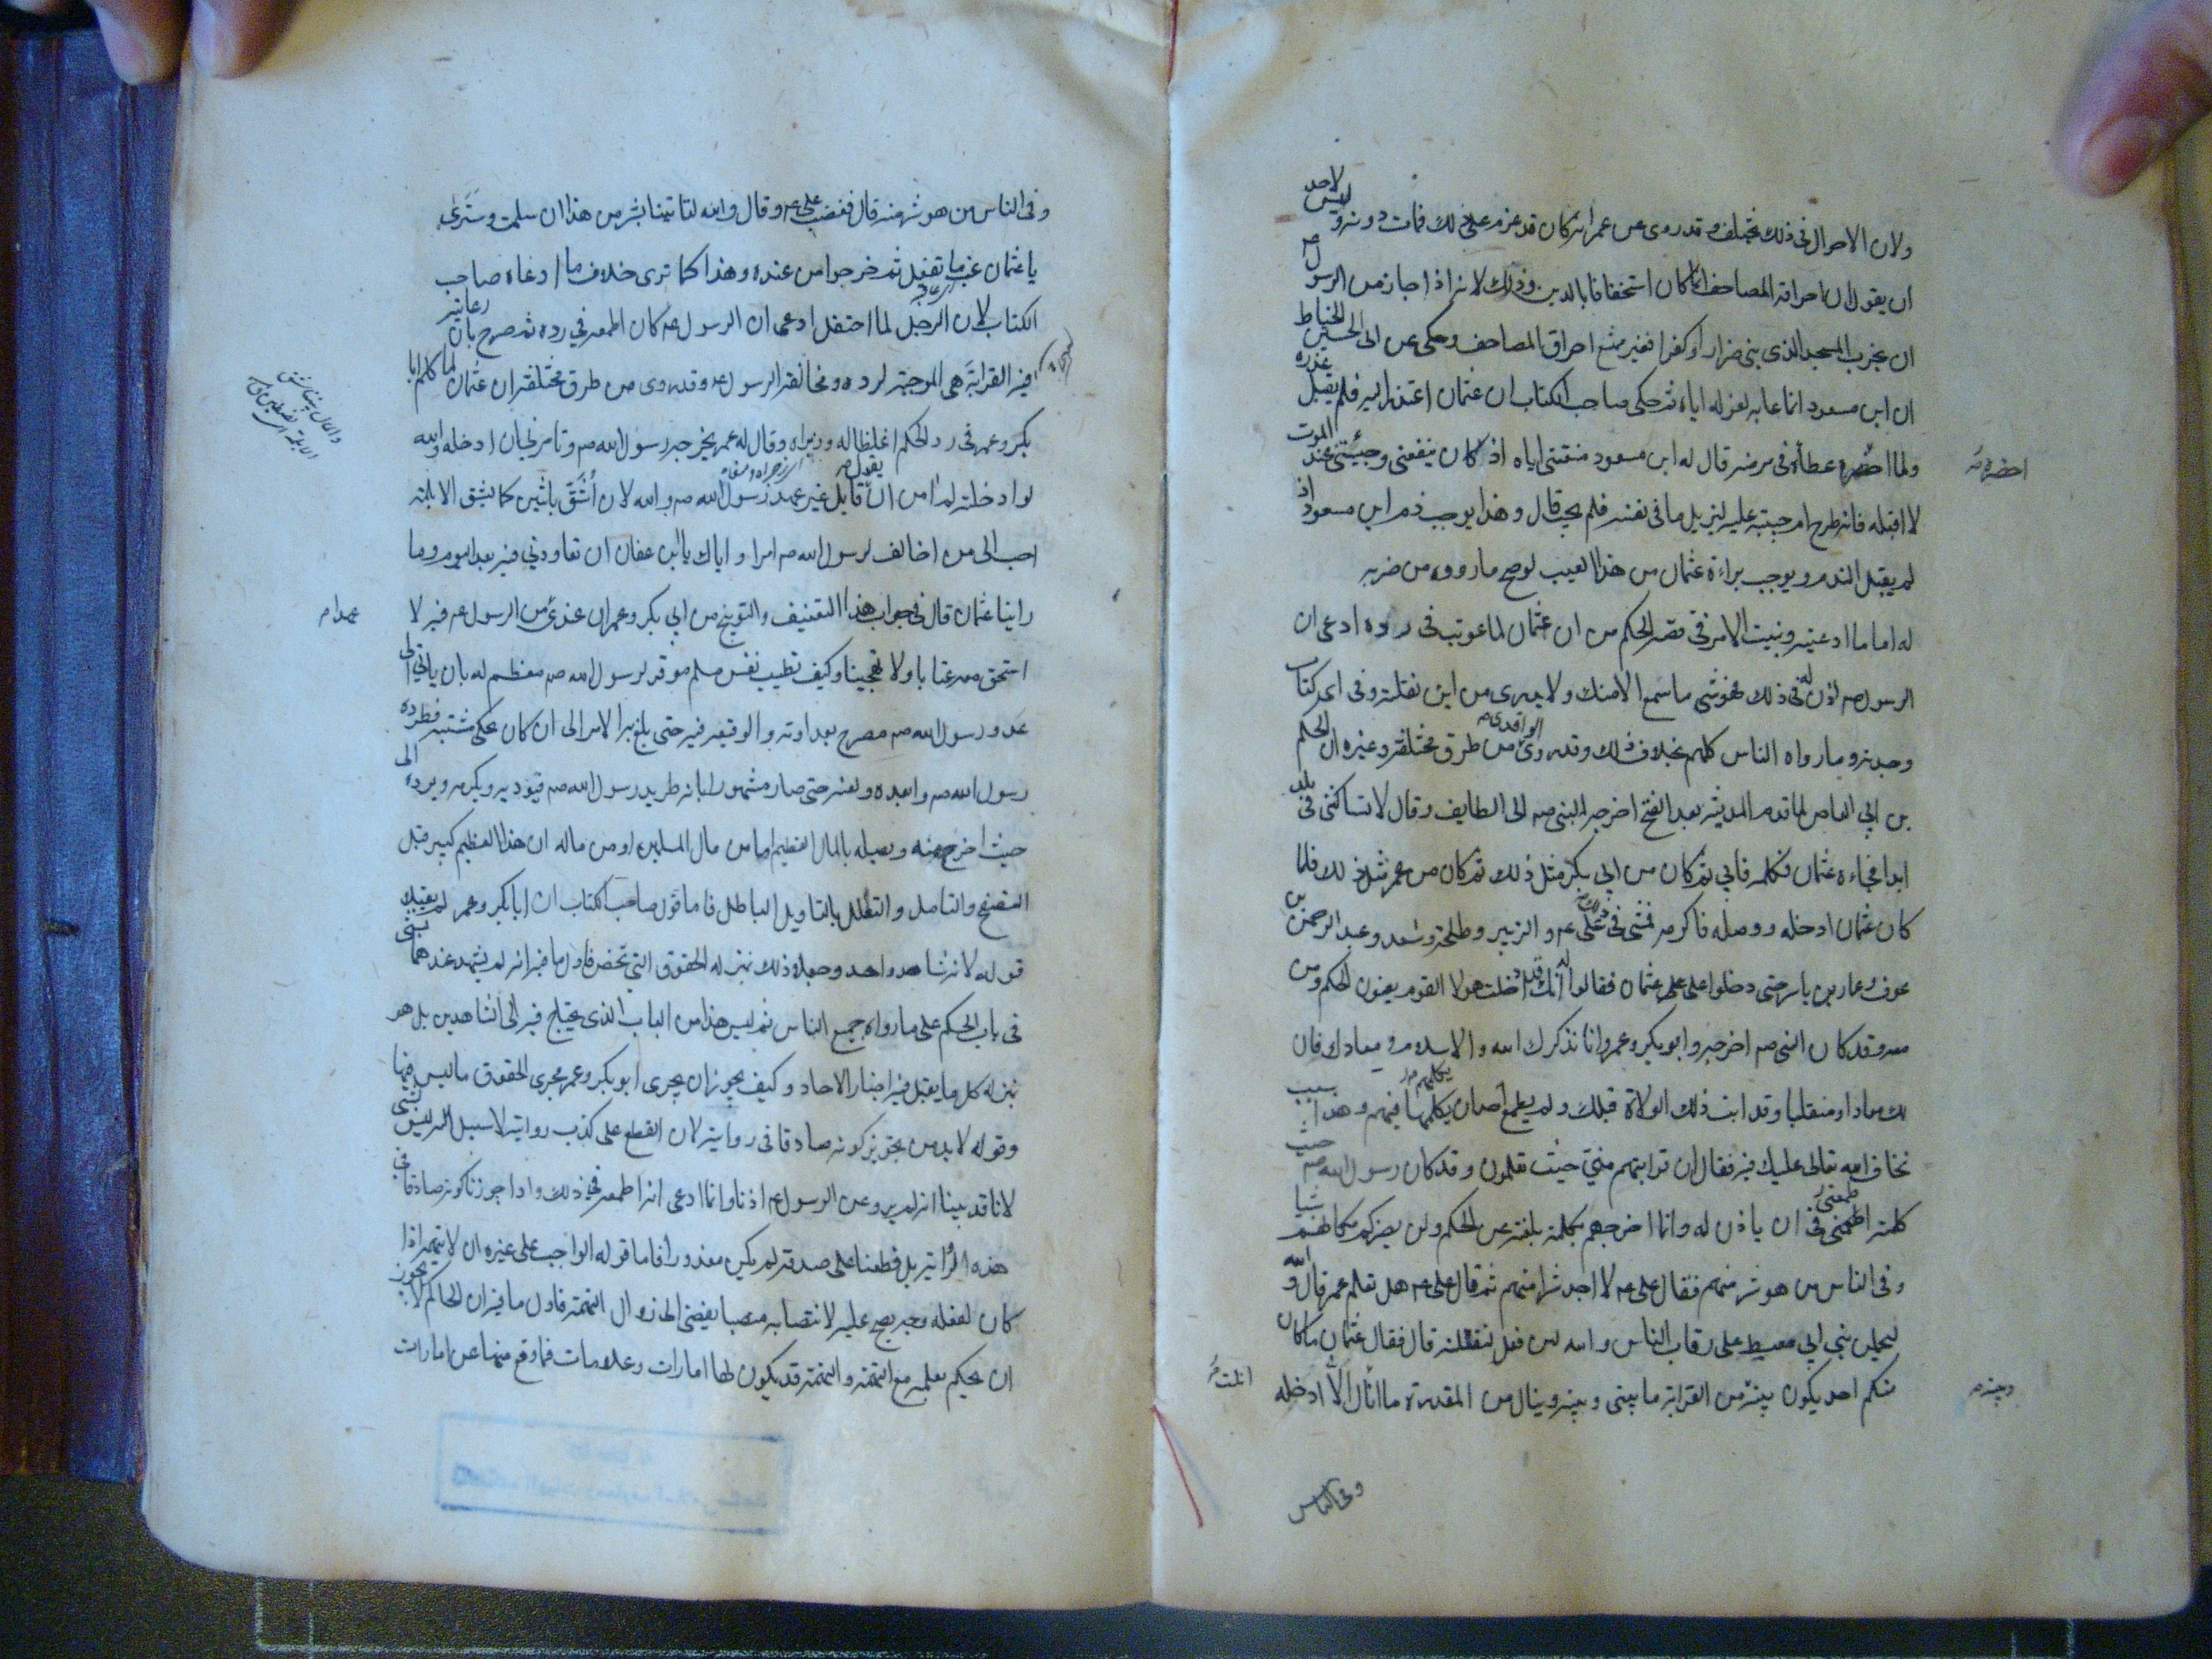 ولان الاحوال في ذلك تختلف وقد روى عن عمر انه كان قد عزم على ذلك فمات دونه وليس لاحد
ان يقول ان احراقه المصاحف انما كان استخفافا بالدين وذلك لانه اذا جاز من الرسول ص
ان يخرب المسجد الذي بنى ضرارا وكفرا فغير ممتنع احراق المصاحف وحكى عن ابى الحسين الخياط
ان ابن مسعود انما عابه لعزله اياه ثم حكى صاحب الكتاب ان عثمان اعتذر اليه فلم يقبل عذره
ولما احضره عطاءه في مرضه قال له ابن مسعود منعتني اياه اذ كان ينفعني وجئتني عند الموت
احضره
لا اقبله فانه طرح ام حبيبة عليه ليزيل ما في نفسه فلم يجب قال وهذا يوجب ذم ابن مسعود اذ
لم يقبل الندم ويوجب براءة عثمان من هذا العيب لو صح ما رووه من ضربه
له اما ما ادعيته وبنيت الامر في قصه الحكم من ان عثمان لما عوتب في رده ادعى ان
الرسول صم اذن له في ذلك فهو شي ما سمع الا منك ولا يدرى من اين نقلته وفي اى كتاب
وجدته وما رواه الناس كلهم بخلاف ذلك وقد روى الواقدى من طرق مختلفة وغيره ان الحكم
بن ابي العاص لما قدم المدينة بعد الفتح اخرجه النبى صم الى الطايف وقال لا تساكني في بلد
ابدا فجاءه عثمان فكلمه فابي ثم كان من ابي بكر مثل ذلك ثم كان من عمر مثل ذلك فلما
كان عثمان ادخله ووصله فاكرمه فمشى في ذلك على عم والزبير وطلحة وسعد وعبد الرحمن بن
عوف وعمار بن ياسر حتى دخلوا على عثمان فقالوا له انك قد ادخلت هولا القوم يعنون الحكم ومن
معه وقد كان النبى صم اخرجه وابو بكر وعمر وانا نذكرك الله والاسلام ومعادك فان
لك معادا ومنقلبا وقد ابت ذلك الولاة قبلك ولم يطمع احد ان يكلمهما فيهم وهذا سبب
نخاف الله تعالى عليك فيه فقال ان قرابتهم مني حيث تعلمون وقد كان رسول الله صم حيث
كلمته اطمعني في ان ياذن له وانما اخرجهم بكلمة بلغته عن الحكم ولن يضركم مكانهم شيا
وفي الناس من هو شر منهم فقال على عم لا اجد شرا منهم ثم قال على عم هل تعلم عمر قال والله
ليحملن بني ابي معيط على رقاب الناس والله لئن فعل لتقتلنه قال فقال عثمان ما كان
منكم احد يكون بينه من القرابة ما بيني وبينه وينال من المقدرة ما انال الا ادخله
وبينه
انلت
وفي الناس
وفي الناس من هو شر منه قال فغضب على عم وقال والله لتاتينا بشر من هذا ان سلمت وسترى
يا عثمان غب ما تفعل ثم خرجوا من عنده وهذا كما ترى خلاف ما ادعاه صاحب
الكتاب لان الرجل لما احتفل ادعى ان الرسول عم كان اطمعه في رده ثم صرح بان رعايته
فيه القرابة هى الموجبة لرده ومخالفة الرسول عم وقد روى من طرق مختلفة ان عثمان لما كلم ابا
بكر وعمر في رد الحكم اغلظا له وزبراه وقال له عمر يخرجه رسول الله صم وتامرني ان ادخله والله
لو ادخلته لم امن ان يقول قايل غير عهد رسول الله صم والله لان اشق باثنين كما تشق الابلمة
احب الى من اخالف لرسول الله صم امرا واياك يا ابن عفان ان تعاودني فيه بعد اليوم وما
راينا عثمان قال في جواب هذا التعنيف والتوبيخ من ابي بكر وعمر ان عندى من الرسول عم فيه لا
عهدا
استحق معه عتابا ولا تهجينا وكيف تطيب نفس مسلم موقر لرسول الله صم معظم له بان ياتي الى
عدو رسول الله صم مصرح بعداوته والوقيعه فيه حتى بلغ به الامر الى ان كان يحكى مشيته فطرده
رسول الله صم وابعده ولعنه حتى صار مشهورا بانه طريد رسول الله صم فيؤديه ويكرمه ويرده الى
حيث اخرج منه ويصله بالمال العظيم اما من مال المسلمين او من ماله ان هذا لعظيم كبير قبل
التصفح والتامل والتعلل بالتاويل الباطل فاما قول صاحب الكتاب ان ابا بكر وعمر لم يقبلا
قوله لانه شاهد واحد وجعلا ذلك بمنزله الحقوق التي تخص فاول ما فيه انه لم يشهد عندهما بشى
في باب الحكم على ما رواه جميع الناس ثم ليس هذا من الباب الذى يحتاج فيه الى الشاهدين بل هو
بمنزله كل ما يقبل فيه اخبار الاحاد وكيف يجوز ان يجرى ابو بكر وعمر مجرى الحقوق ما ليس فيها
وقوله لابد من تجويز كونه صادقا في روايته لان القطع على كذب روايته لا سبيل اليه ليس بشى
لانا قد بينا انه لم يرو عن الرسول عم اذنا وانما ادعى انه اطمعه في ذلك واذا جوزنا كونه صادقا في
هذه الرواية بل قطعنا على صدقه لم يكن معذورا فاما قوله الواجب على غيره ان لا يتهمه اذا
كان لفعله وجه يصح عليه لانتصابه منصبا يفضى الى زوال التهمة فاول ما فيه ان الحاكم لا يجوز
ان يحكم بعلمه مع التهمة والتهمة قد يكون لها امارات وعلامات فما وقع منها عن امارات